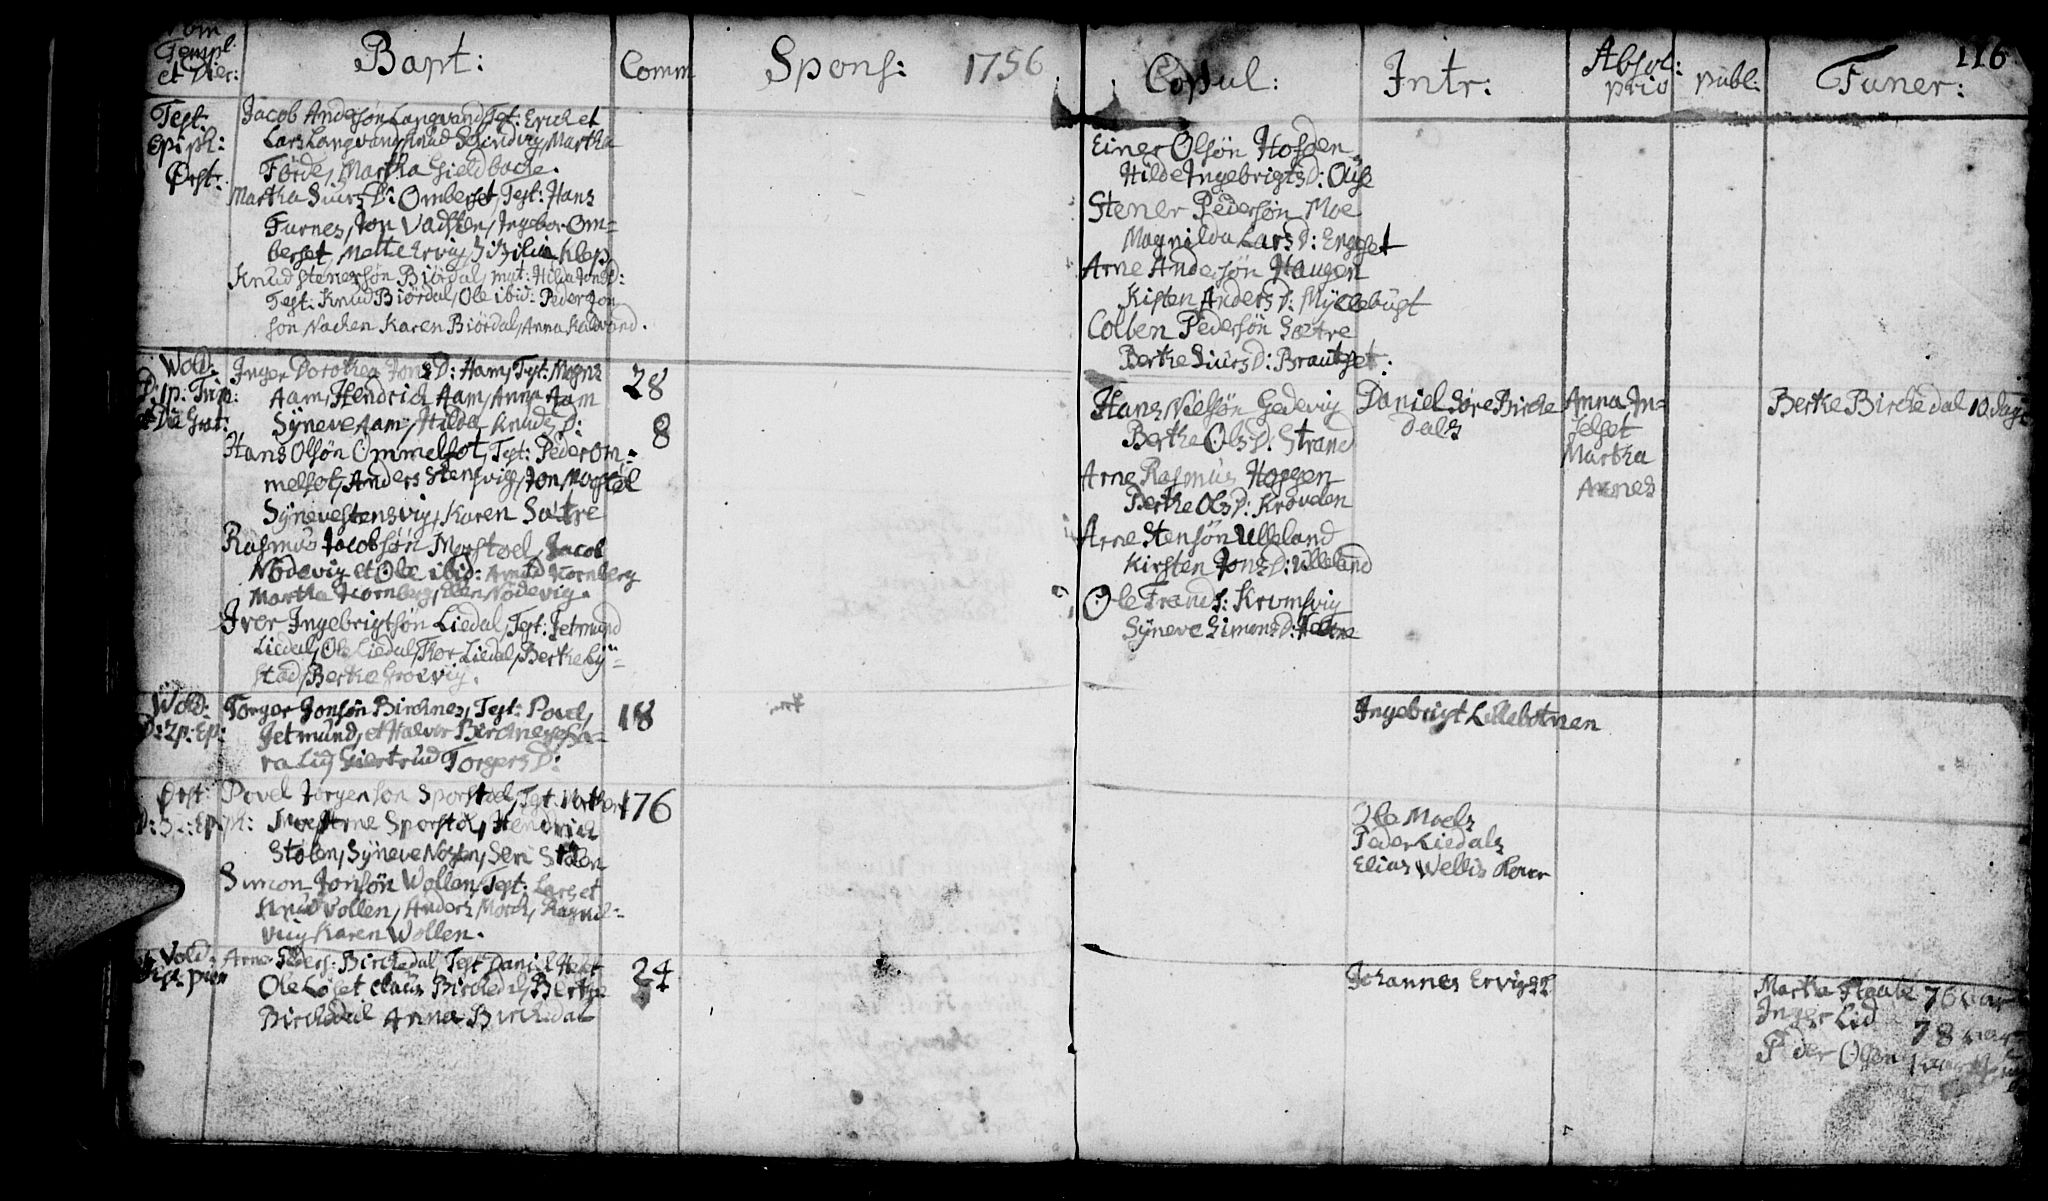 Templ.
et Dies:
Bapt:
Comm
Spons:
1756
Copul:
Intr:
Absol:
priv
publ:
Funer:
116
Fest:
Epiph:
Ørst:
Jacob Andersøn Langvand Test: Erich et
Lars Langvand, Knud Martha
Førde, Martha Gieldbache.
Martha Siurs D: Omberset, Test: Hans
Furnes, Jon Vadsten, Ingebor Om-
berset, Mette Ervig, Klep
Knud Stenersøn Biørdal, mat: Hilda Jons D:
Test: Knud Biørdal, Ole ibid: Peder Jon
søn Nachen Karen Biørdal, Anna Kalvand.
Einer Olsøn Hofden
Hilde Ingebrigts D:
Stener Pedersøn Moe
Magnilda Lars D: Engset
Arne Andersøn Haugen
Kisten Anders D: Mÿclebust
Colben Pedersøn Sætre
Berthe Siurs D: Brautset:
Wold:
D: 1p: Trin:
Inger Dorothea Jons D: Ham, Test: Mogns
Aam, Hendrich Aam, Anna Aam
Sÿneve Aam, Hilda Knuds D:
Hans Olsøn Ommelfot, Test: Peder Om-
melfot, Anders Stensvig, Jon Mostel
Sÿneve Stensvig, Karen Sætre
Rasmus Jacobsøn Morstoel, Jacob
Nødevig et Ole ibid: Hornberg
Martha Hornberg, Ellen Nødevig.
Iver Ingebrigtsøn Liedal, Test: Jetmund
Liedal, Ole Liedal, Thor Liedal, Berthe Lÿ-
stad, Berthe
28
8
Hans Nielsøn Gedevig
Berthe Ols D: Strand
Arne Rasmus Hoggen
Berthe Ols D: Krovden
Arne Stensøn Ulleland
Kirsten Jons D: Ulleland
Ole Frands: Krumsvig
Sÿneve Simons D:
Daniel Søre Birche
dals
Anna In-
selset
Martha
Aarnes
Berthe Birchedal 10 dage
Wold:
D: 2p: Ep:
Torger Jonsøn Birchnes, Test: Povel,
Jetmund, et Halvor Birchnes, Sa-
ra Lid, Giertrud Torgers D:
18
Ingebrigt Lillebotnen
Ørst:
Povel Jørgensøn Sporstoel, Test:
Moe, Arne Sporstøl, Hendrich
Stølen, Sÿneve Nosen, Stølen
Simon Jonsøn Wollen, Test: Lars et
Knud Vollen, Anders Morch, Ragnil-
vig Karen Wollen.
176
Ole Moels
Peder Liedals
Elias Wellis
Vold:
Arne Peders: Birchedal, Test Daniel
Ole Løset Claus Birchedal, Berthe
Birchedal Anna Birchedal
24
Johannes Ervigs
Martha 76 aar
Inger Lid
78 aar
Peder Olsøn